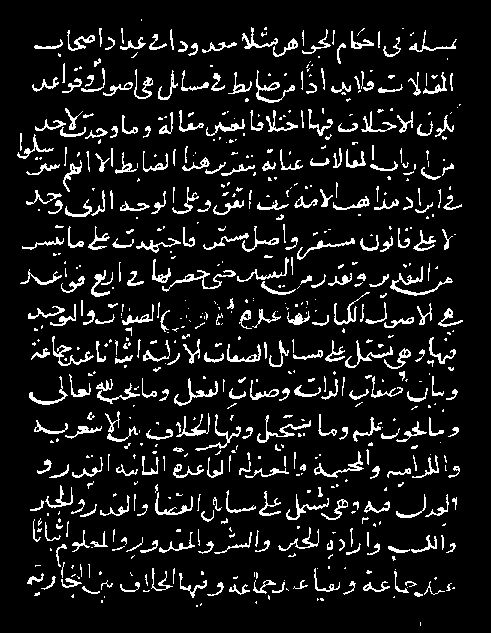 بمسئلة في احكام الجواهر مثلا معدودا في عداد اصحاب
المقالات فلابد اذا من ضابط في مسائل هي اصول وقواعد
يكون الاختلاف فيها اختلافا يعتبر مقالة وما وجدت لاحد
من ارباب المقالات عناية بتقرير هذا الضابط الا انهم استرسلوا
في ايراد مذاهب الامة كيف اتفق وعلى الوجه الذي وجد
لا على قانون مستقر واصل مستمر فاجتهدت على ما تيسر
من التقدير وتقدر من التيسير حتى حصرتها في اربع قواعد
هي الاصول الكبار القاعدة الاولى الصفات والتوحيد
فيها وهي تشتمل على مسائل الصفات الازلية اثباتا عند جماعة
وبيان صفات الذات وصفات الفعل وما يجب لله تعالى
وما يجوز عليه وما يستحيل وفيها الخلاف بين الاشعرية
والكرامية والمجسمة والمعتزلة القاعدة الثانية القدر و
العدل فيه وهي تشتمل على مسائل القضا والقدر والجبر
والكسب وارادة الخير والشر والمقدور والمعلوم اثباتا
عند جماعة ونفيا عند جماعة وفيها الخلاف بين النجارية